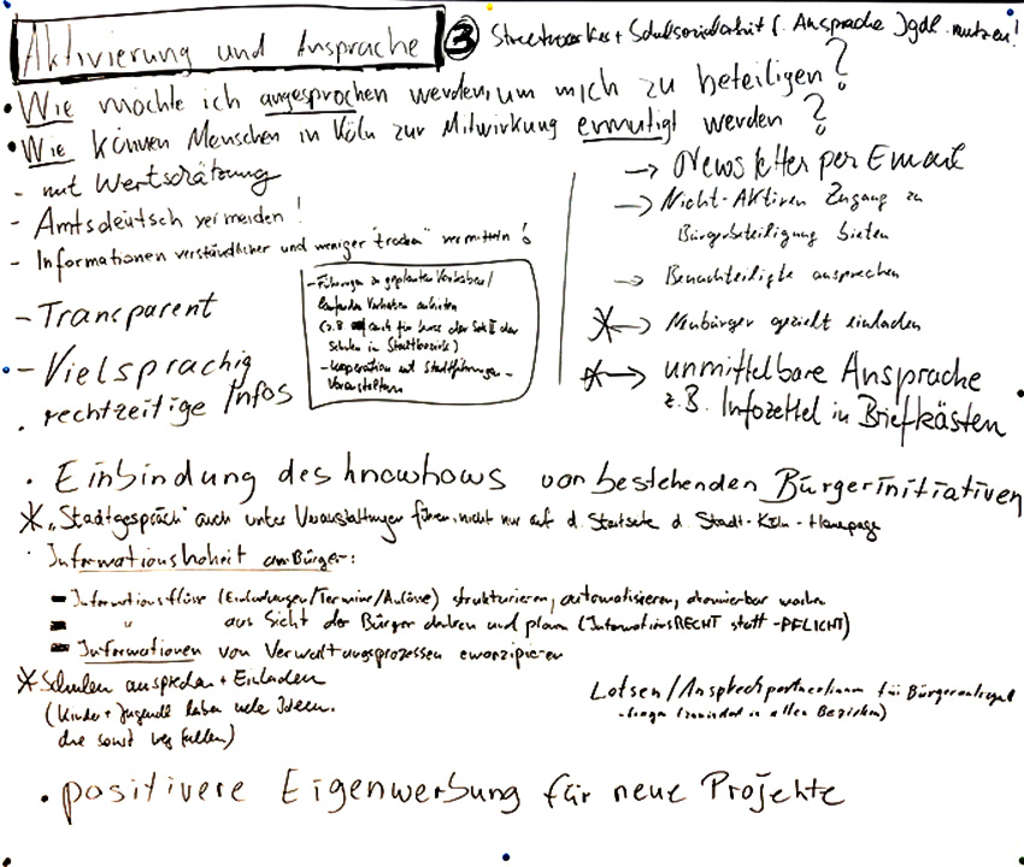 Aktivierung und Ansprache
③ Streetworker + Schulsozialarbeit f. Ansprache Jgdl. nutzen!
• Wie möchte ich angesprochen werden, um mich zu beteiligen?
• Wie können Menschen in Köln zur Mitwirkung ermutigt werden?
- mit Wertschätzung
- Amtsdeutsch vermeiden!
- Informationen verständlicher und weniger "trocken" vermitteln!
- Transparent
- Vielsprachig
. rechtzeitige Infos
- Führungen zu geplanten Vorhaben/
laufenden Vorhaben anbieten
(z.B. auch für Kurse der Sek II der
Schulen im Stadtbezirk)
- Kooperation mit Stadtführungen-
Veranstaltern
→ Newsletter per Email
→ Nicht-Aktiven Zugang zu
Bürgerbeteiligung bieten
→ Benachteiligte ansprechen
* → Neubürger gezielt einladen
* → unmittelbare Ansprache
z.B. Infozettel in Briefkästen
. Einbindung des knowhows von bestehenden Bürgerinitiativen
* „Stadtgespräch" auch unter Veranstaltungen führen, nicht nur auf d. Startseite d. Stadt-Köln-Homepage
. Informationshoheit am Bürger:
- Informationsflüsse (Einladungen/Termine/Anlässe) strukturieren, automatisieren, abonnierbar machen
- " aus Sicht der Bürger denken und planen (InformationsRECHT statt -PFLICHT)
- Informationen von Verwaltungsprozessen
* Schulen ansprechen + Einladen
(Kinder + Jugendl. haben viele Ideen.
die sonst weg fallen)
Lotsen/AnsprechpartnerInnen für
in allen Bezirken)
. positivere Eigenwerbung für neue Projekte